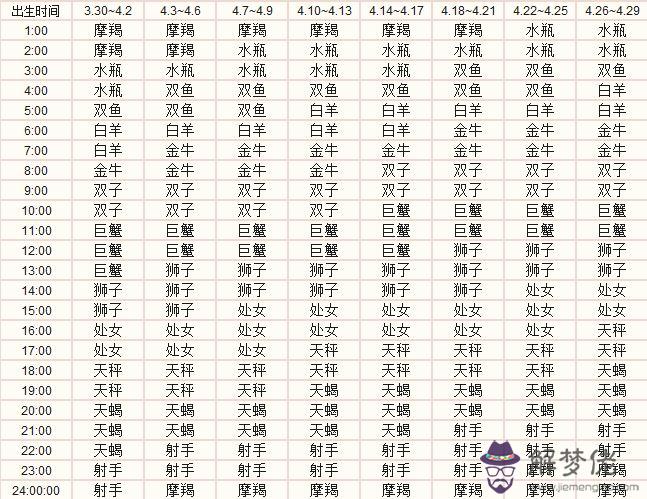 出生时间 3.30~4.2 4.3~4.6 4.7~4.9 4.10~4.13 4.14~4.17 4.18~4.21 4.22~4.25 4.26~4.29
1:00 摩羯 摩羯 摩羯 摩羯 摩羯 摩羯 水瓶 水瓶
2:00 摩羯 摩羯 水瓶 水瓶 水瓶 水瓶 水瓶 水瓶
3:00 水瓶 水瓶 水瓶 水瓶 水瓶 双鱼 双鱼 双鱼
4:00 水瓶 双鱼 双鱼 双鱼 双鱼 双鱼 双鱼 白羊
5:00 双鱼 双鱼 双鱼 白羊 白羊 白羊 白羊 白羊
6:00 白羊 白羊 白羊 白羊 白羊 金牛 金牛 金牛
7:00 白羊 金牛 金牛 金牛 金牛 金牛 金牛 金牛
8:00 金牛 金牛 金牛 金牛 双子 双子 双子 双子
9:00 双子 双子 双子 双子 双子 双子 双子 双子
10:00 双子 双子 双子 双子 巨蟹 巨蟹 巨蟹 巨蟹
11:00 巨蟹 巨蟹 巨蟹 巨蟹 巨蟹 巨蟹 巨蟹 巨蟹
12:00 巨蟹 巨蟹 巨蟹 巨蟹 巨蟹 狮子 狮子 狮子
13:00 巨蟹 狮子 狮子 狮子 狮子 狮子 狮子 狮子
14:00 狮子 狮子 狮子 狮子 狮子 狮子 处女 处女
15:00 狮子 狮子 处女 处女 处女 处女 处女 处女
16:00 处女 处女 处女 处女 处女 处女 处女 天秤
17:00 处女 处女 处女 天秤 天秤 天秤 天秤 天秤
18:00 天秤 天秤 天秤 天秤 天秤 天秤 天秤 天蝎
19:00 天秤 天秤 天秤 天蝎 天蝎 天蝎 天蝎 天蝎
20:00 天蝎 天蝎 天蝎 天蝎 天蝎 天蝎 天蝎 天蝎
21:00 天蝎 天蝎 天蝎 天蝎 天蝎 射手 射手 射手
22:00 天蝎 射手 射手 射手 射手 射手 射手 射手
23:00 射手 射手 射手 射手 射手 射手 摩羯 摩羯
24:00:00 射手 摩羯 摩羯 摩羯 摩羯 摩羯 摩羯 摩羯
解梦佬